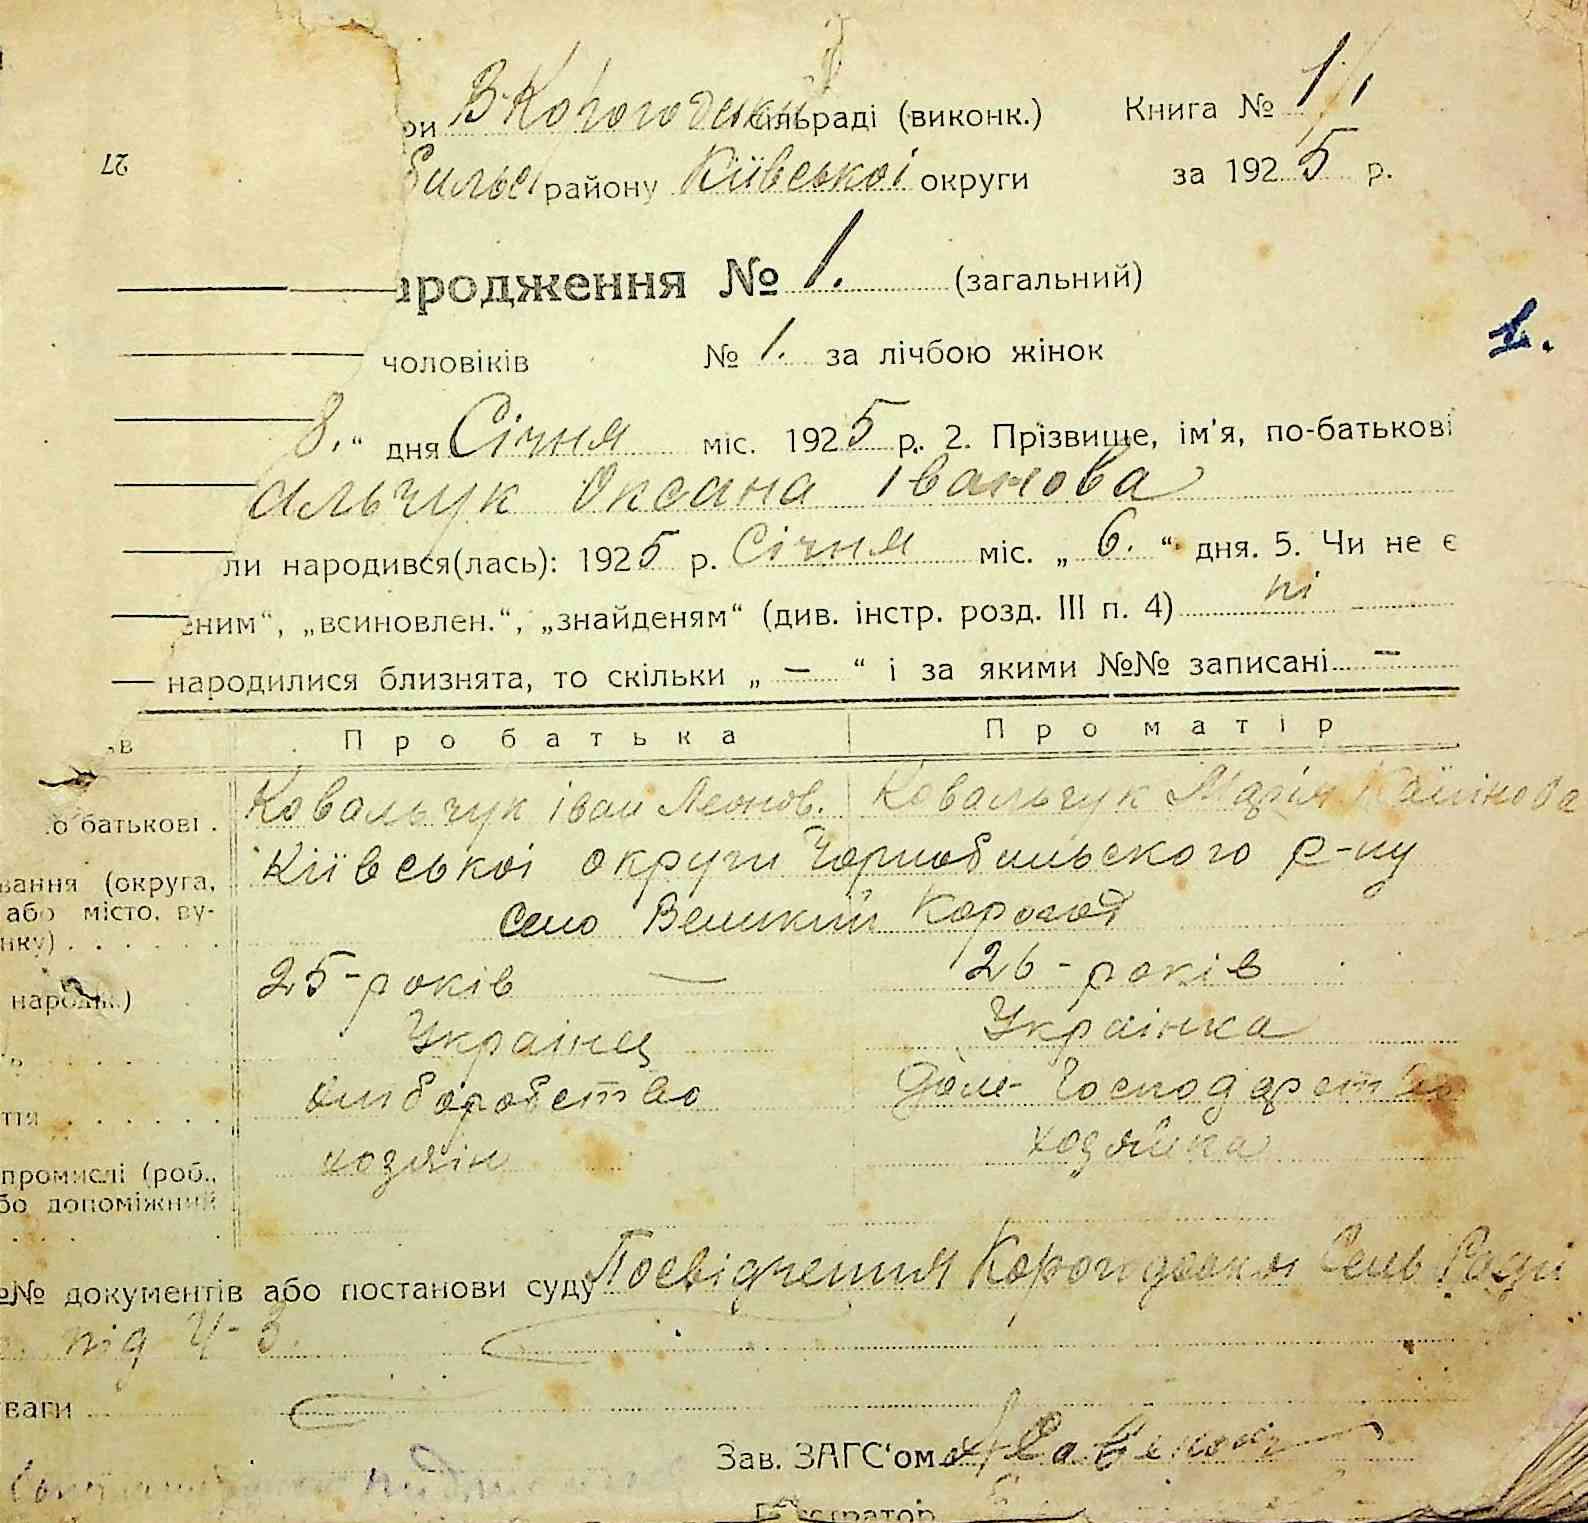 ри В-Корогодский сільраді (виконк.) Книга № 1/1
27
бильс районy Київської округи за 1925 р.
ародження № 1. (загальний)
чоловіків № 1. за лічбою жінок
1.
8.“ дня Січня міс. 1925 р. 2. Прізвище, ім'я, по-батькові
альчук Оксана Іванова
ли народився(лась): 1925 р. Січня міс. „ 6. “ дня. 5. Чи не є
еним“, „всиновлен.“, „знайденям“ (див. інстр. розд. III п. 4) ні
народилися близнята, то скільки „ — “ і за якими №№ записані —
ів Про батька Про матір
о батькові . Ковальчук Іван Леонов. Ковальчук Марія
вання (округа, Київської округи Чорнобильского р-ну
або місто, ву-
нку) Село Великий Корогод
народж.) 25-років — 26-років
Українец Українка
ття хліборобство Дом-Господарство
промислі (роб., хозяїн хозяйка
бо допоміжний
№№ документів або постанови суду Посвідчення Корогодської Сель Ради
під Ч-3.
ваги
Зав. ЗАГС'ом
Реєстратор